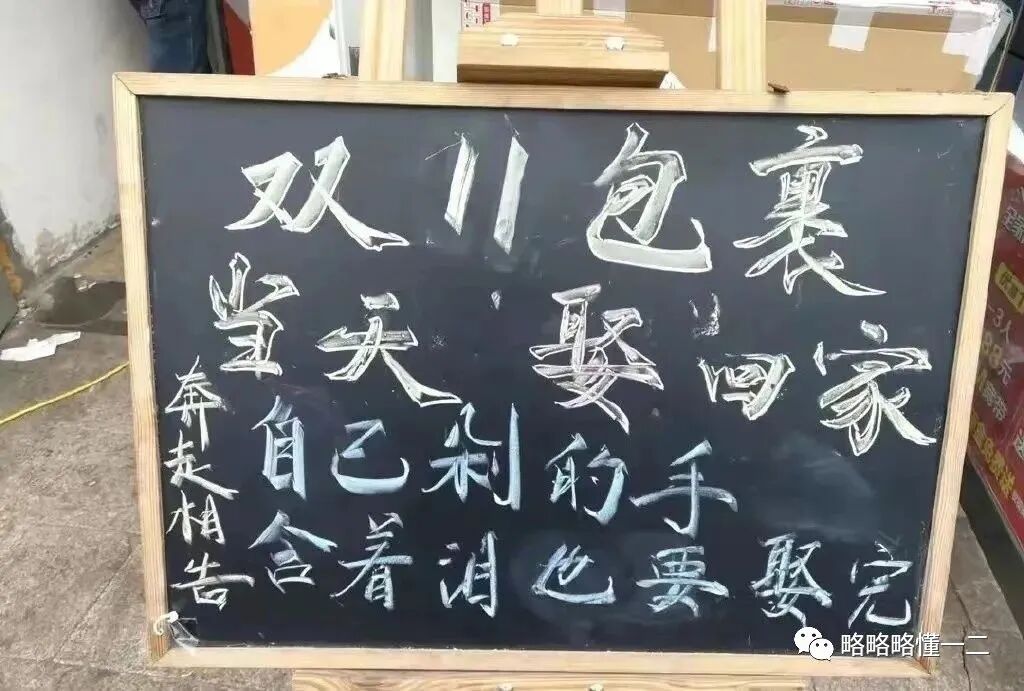 双11包裹
当天娶回家
自己剁的手
含着泪也要娶完
奔走相告
略略略懂一二